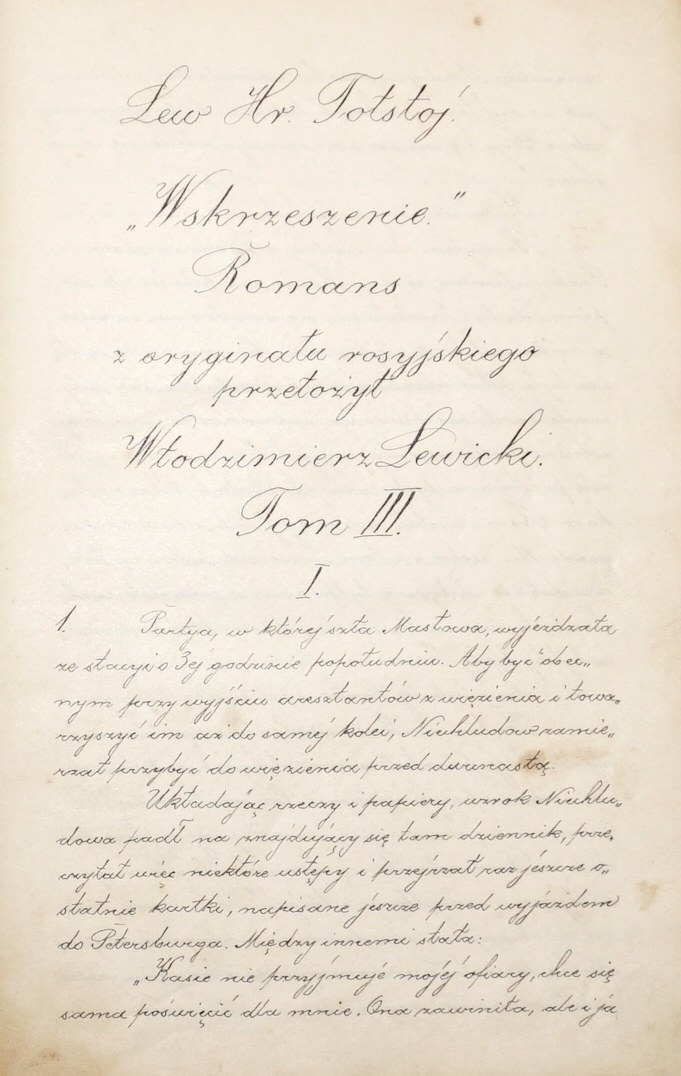 Lew Hr. Tołstoj.
„Wskrzeszenie."
Romans
z oryginału rosyjskiego
przełożył
Włodzimierz Lewicki.
Tom III.
I.
1. Partya, w której szła Masłowa, wyjeżdżała
ze stacyi o 3ej godzinie popołudniu. Aby być obec„
nym przy wyjściu aresztantów z więzienia i towa„
rzyszyć im aż do samej kolei, Niechludow zamie„
rzał przybyć do więzienia przed dwunastą.
Układając rzeczy i papiery, wzrok Niechlu„
dowa padł na znajdujący się tam dziennik, prze„
czytał więc niektóre ustępy i przejrzał raz jeszcze o„
statnie kartki, napisane jeszcze przed wyjazdem
do Petersburga. Między innemi stało:
„Kasie nie przyjmuje mojej ofiary, chce się
sama poświęcić dla mnie. Ona zawiniła, ale i ja